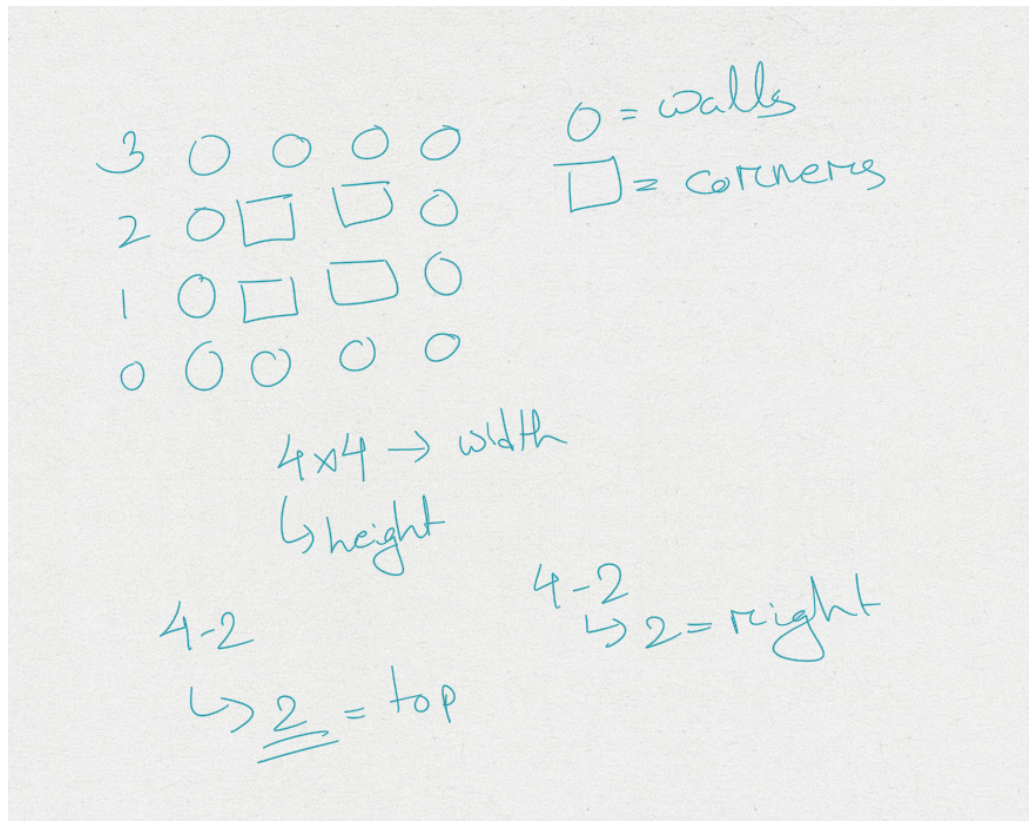 3 O O O O
2 O □ □ O
1 O □ □ O
0 O O O O
O = walls
□ = corners
4x4 → width
↳ height
4-2
↳ 2 = top
4-2
↳ 2 = right